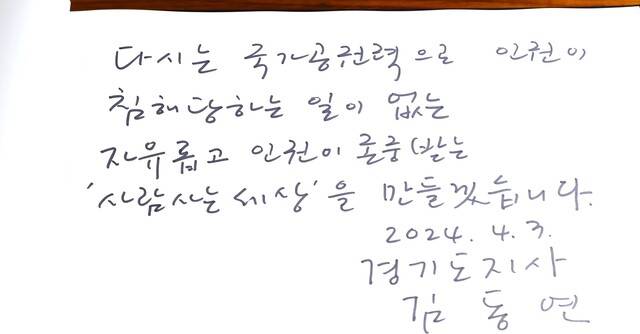 다시는 국가공권력으로 인권이
침해당하는 일이 없는
자유롭고 인권이 존중받는
'사람사는 세상'을 만들겠습니다.
2024. 4. 3.
경기도지사
김동연